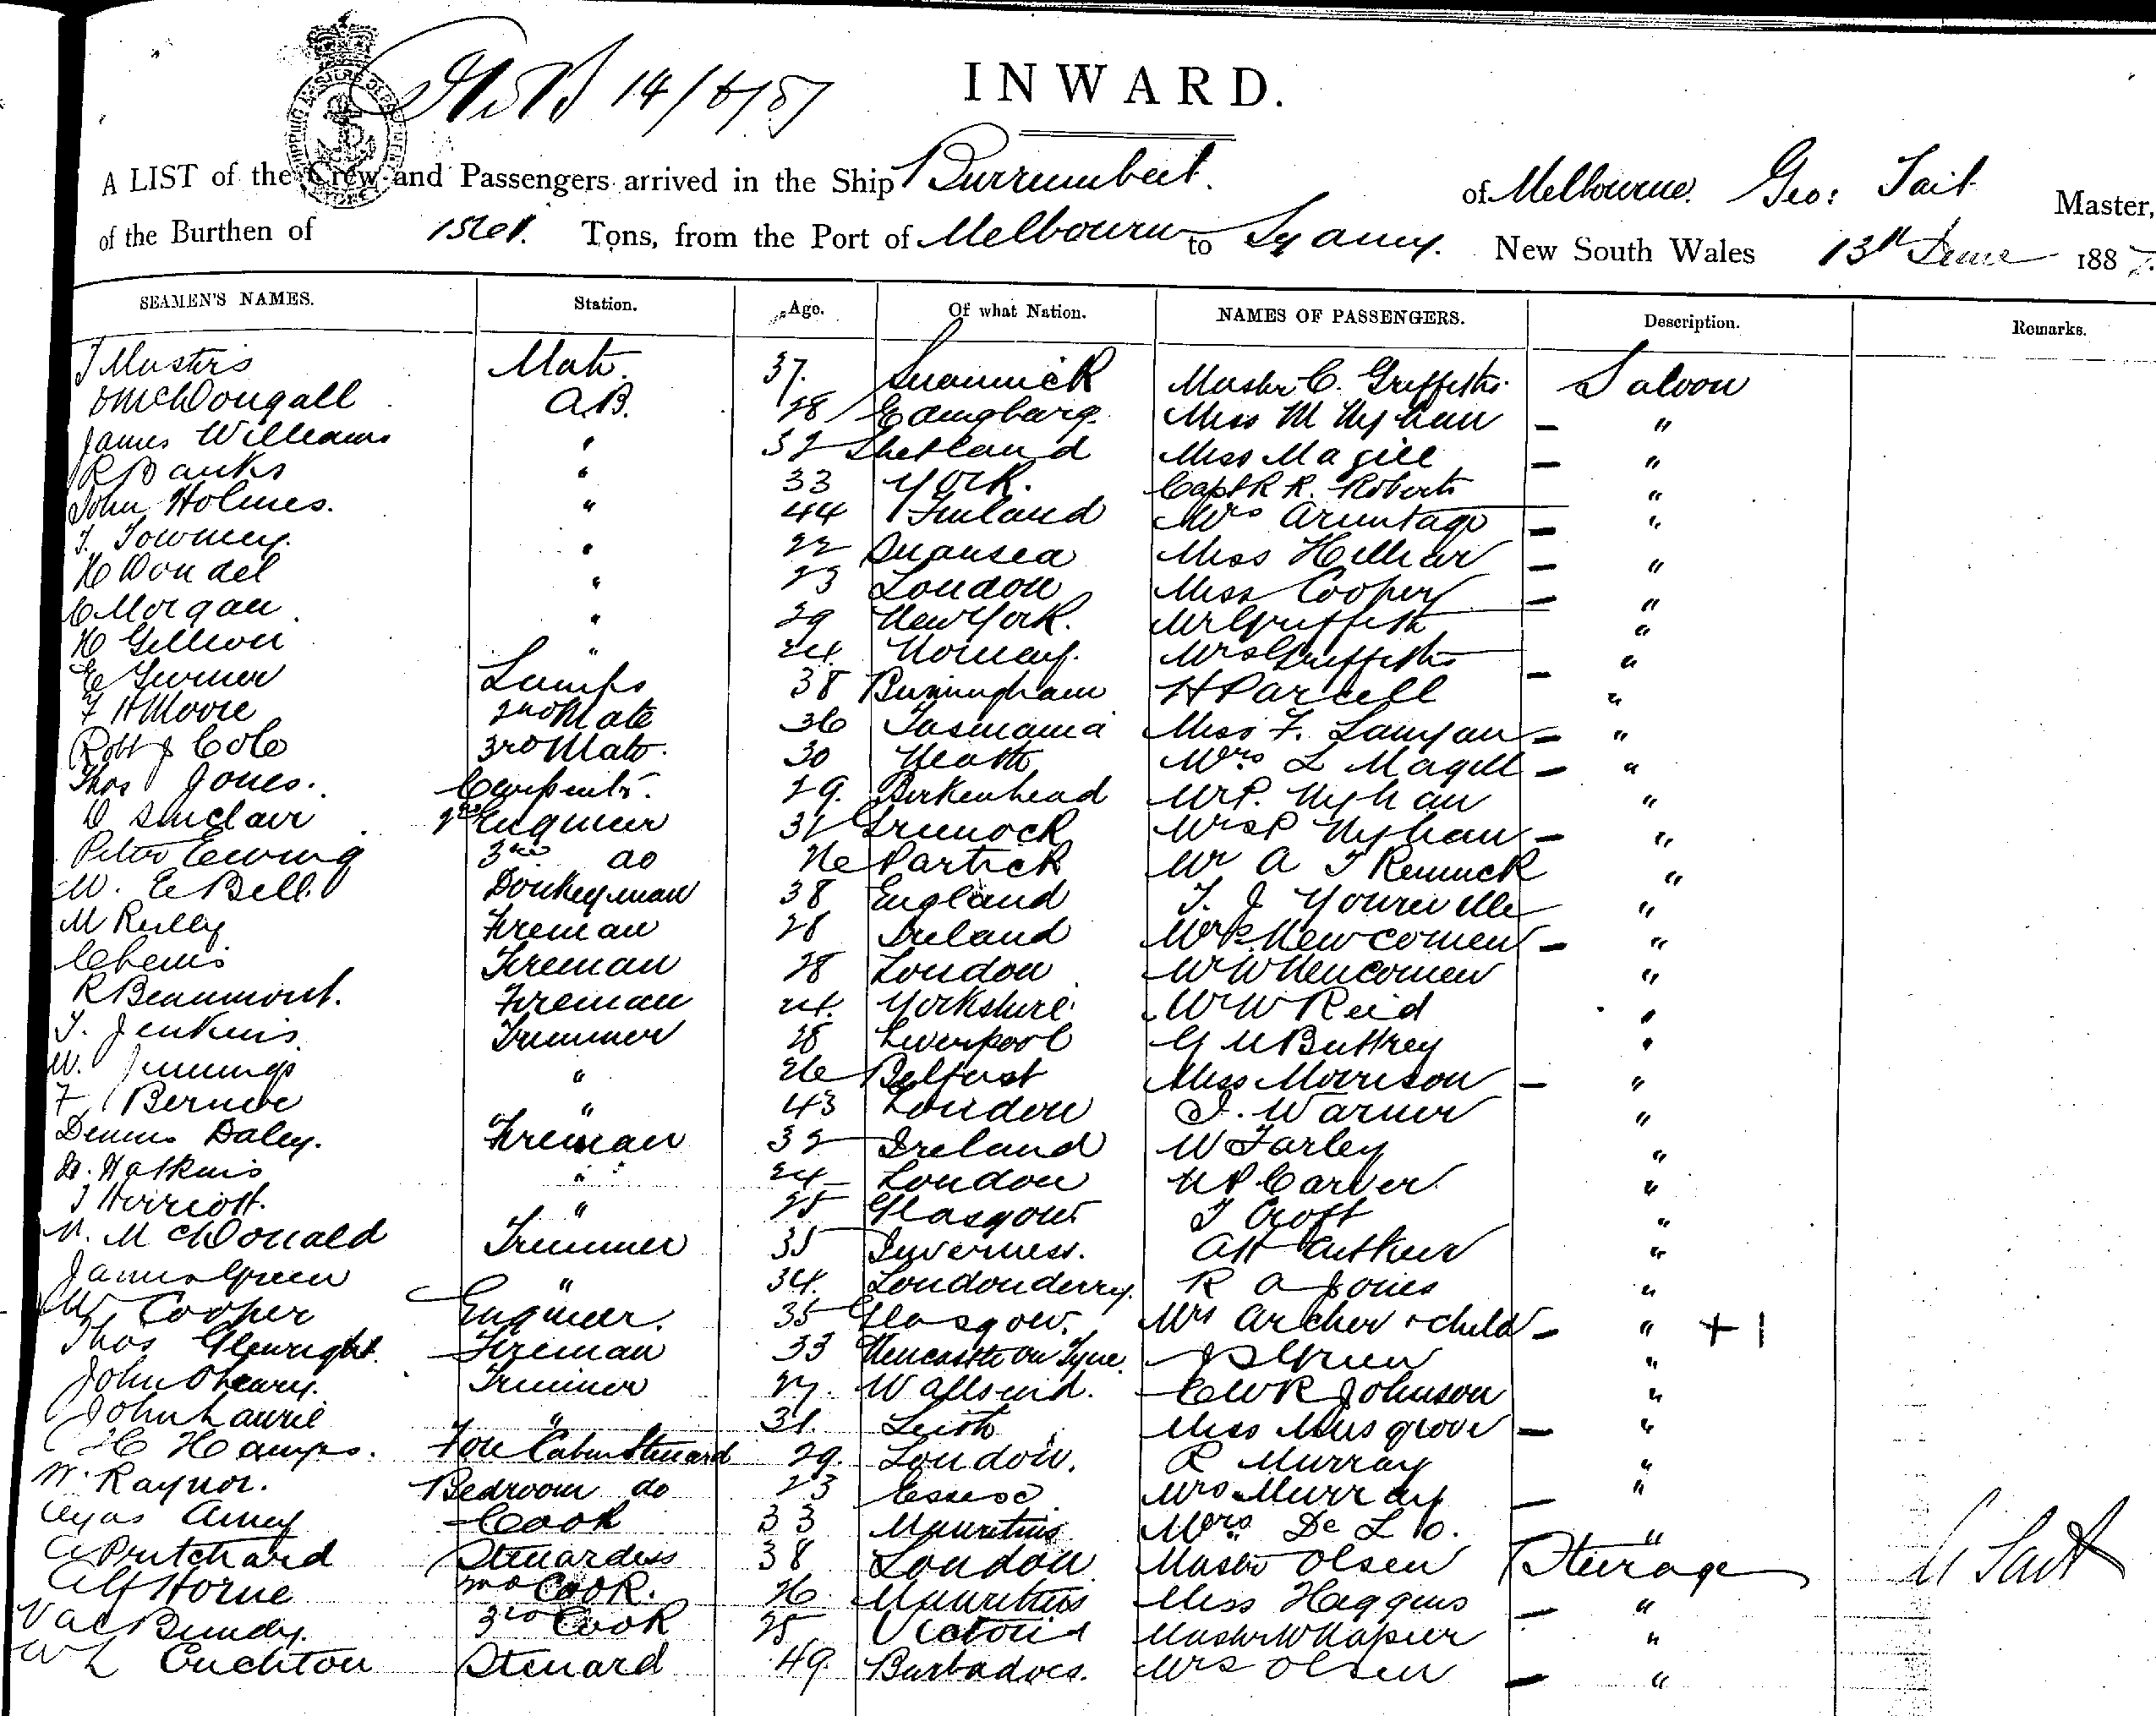 14/6/87
INWARD.
A LIST of the Crew and Passengers arrived in the Ship Burrumbeet. of Melbourne. Geo: Tait Master,
of the Burthen of Tons, from the Port of Melbourne to Sydney. New South Wales 13th June 1887.
SEAMEN'S NAMES. Station. Age. Of what Nation. NAMES OF PASSENGERS. Description. Remarks.
J Masters Mate. 37. Master C. Griffiths. Saloon
McDougall A.B. 28 Edingburg. Miss M Nyhan — "
James Williams " 32 Shetland Miss Magill — "
R Banks " 33 York. Capt R R. Roberts "
John Holmes. " 44 Finland Mrs Armitage — "
T. Towmey. " 22 Swansea Miss Helliar — "
H Dondel " 23 London Miss Cooper — "
C Morgan " 29 New York. Mr Griffith "
H Gillion " 24. Norway. Mrs Griffiths — "
E Turner Lamps 38 Birmingham H Parcell "
F H Moore 2nd Mate 36 Tasmania Miss F. — "
Robt J Cole 3rd Mate. 30 Neath Mrs L Magill — "
Thos Jones. Carpentr. 29. Birkenhead Mr P. Nyhan "
D Sinclair 2nd Engineer 32 Greenock Mrs P Nyhan — "
Peter Ewing 3rd do 26 Partick Mr A T Rennick "
W. E Bell. Donkeyman 38 England T. J "
M Reilly Fireman 28 Ireland Mrs Newcomen — "
Fireman 28 London Mr W Newcomen "
R Beaumont. Fireman 24. Yorkshire Mr W Reid "
T. Jenkins. Trimmer 28 Liverpool G M Buttrey "
W. Jennings " 26 Belfast Miss Morrison — "
F " 43 London J. Warner "
Dennis Daley. Fireman 32 Ireland W Farley "
Watkins " 24 London Carver "
J Herriott. " 25 Glasgow. T Croft "
McDonald Trimmer 35 Inverness. "
James Green " 34. Londonderry. R A Jones "
W Cooper Engineer. 35 Glasgow. Mrs Archer & child — " + 1
Thos Glenright. Fireman 33 Newcastle on Tyne. J Green "
John Oheary. Trimmer 27. Wallsend. C W R Johnson "
John Laurie " 31. Leith Miss Musgrove — "
H Hamps. Fore Cabin Steward 29. London. R Murray "
W. Raynor. Bedroom do 23 Essex. Mrs Murray — "
Amey Cook 33 Mauritius Mrs De L "
A Pritchard Stewardess 38 London Master Olsen Steerage
Alf Horne 2nd Cook. 26 Mauritius Miss Haggins — "
Val Bundy. 3rd Cook 25 Victoria Master W Napier "
W L Crichton Steward 49. Barbadoes. Mrs Olsen — "
G Tait